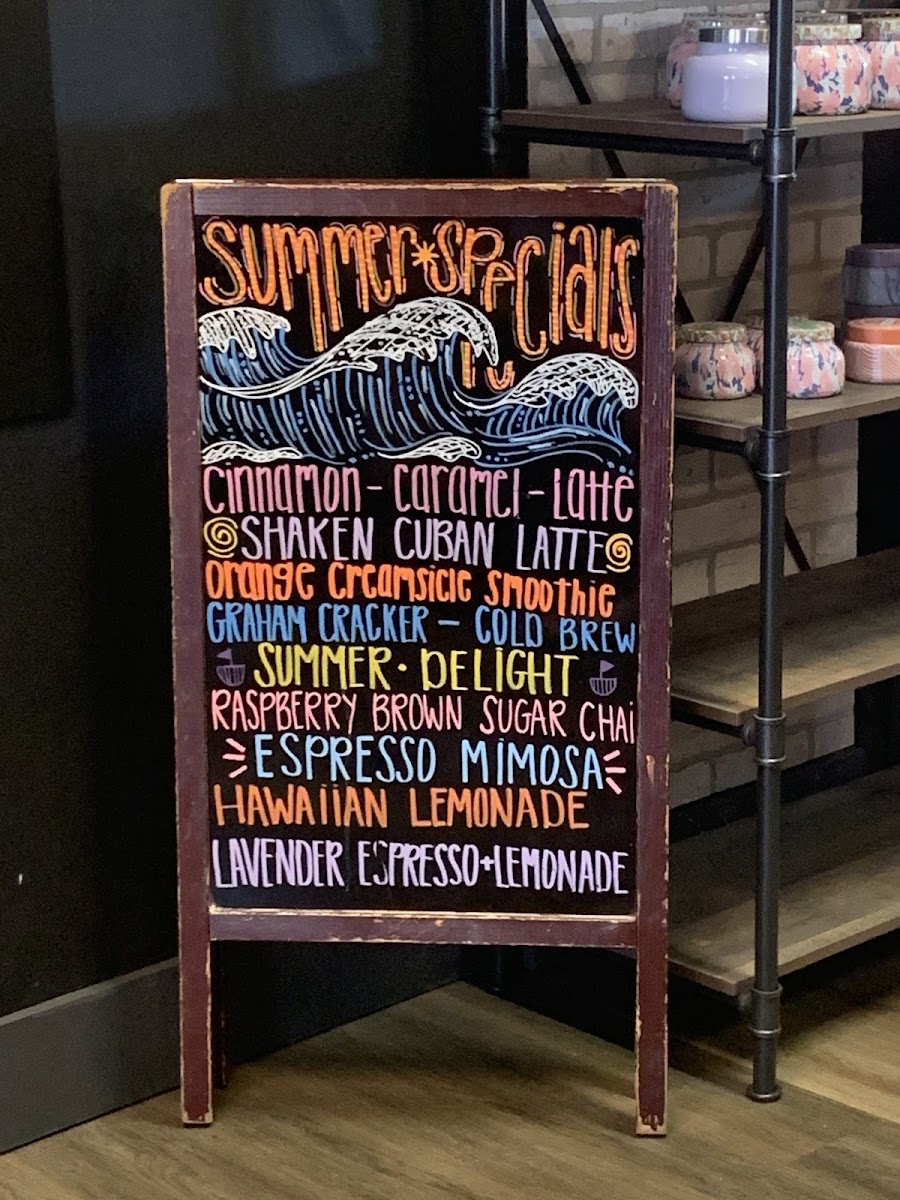 summer*specials
cinnamon - caramel - latte
SHAKEN CUBAN LATTE
orange creamsicle smoothie
GRAHAM CRACKER - COLD BREW
SUMMER · DELIGHT
RASPBERRY BROWN SUGAR CHAi
ESPRESSO MiMOSA
HAWAiiAN LEMONADE
LAVENDER ESPRESSO+LEMONADE